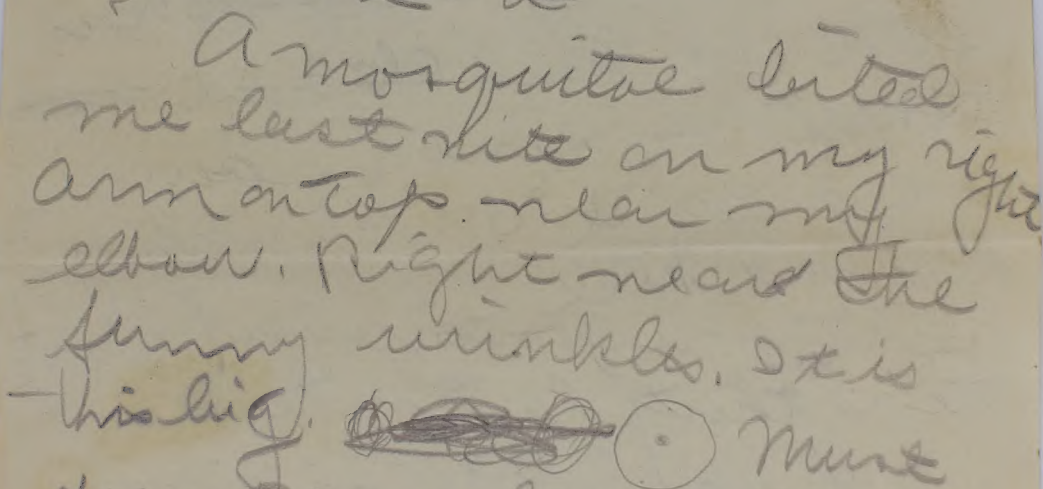 A mosquitoe bited
me last nite on my right
arm on top near my
elbow. Right near the
funny wrinkles. It is
this big. Must